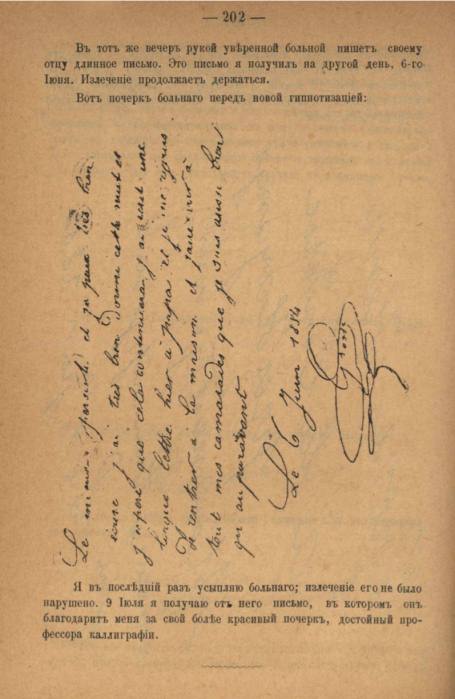 — 202 —
Въ тотъ же вечеръ рукой увѣренной больной пишетъ своему
отцу длинное письмо. Это письмо я получилъ на другой день, 6-го
Іюня. Излеченіе продолжаетъ держаться.
Вотъ почеркъ больнаго передъ новой гипнотизаціей:
Le mieux persiste et je peux très bien
écrire j'ai très bien dormi cette nuit et
j'espère que cela continuera j'ai écrit une
longue lettre hier à papa et je me réjouis
de rentrer à la maison et
tout mes camarades que je suis aussi bon
qu auparavant
Le 6 Juin 1884
Я въ послѣдній разъ усыпляю больнаго; излеченіе его не было
нарушено. 9 Іюля я получаю отъ него письмо, въ которомъ онъ
благодаритъ меня за свой болѣе красивый почеркъ, достойный про-
фессора каллиграфіи.